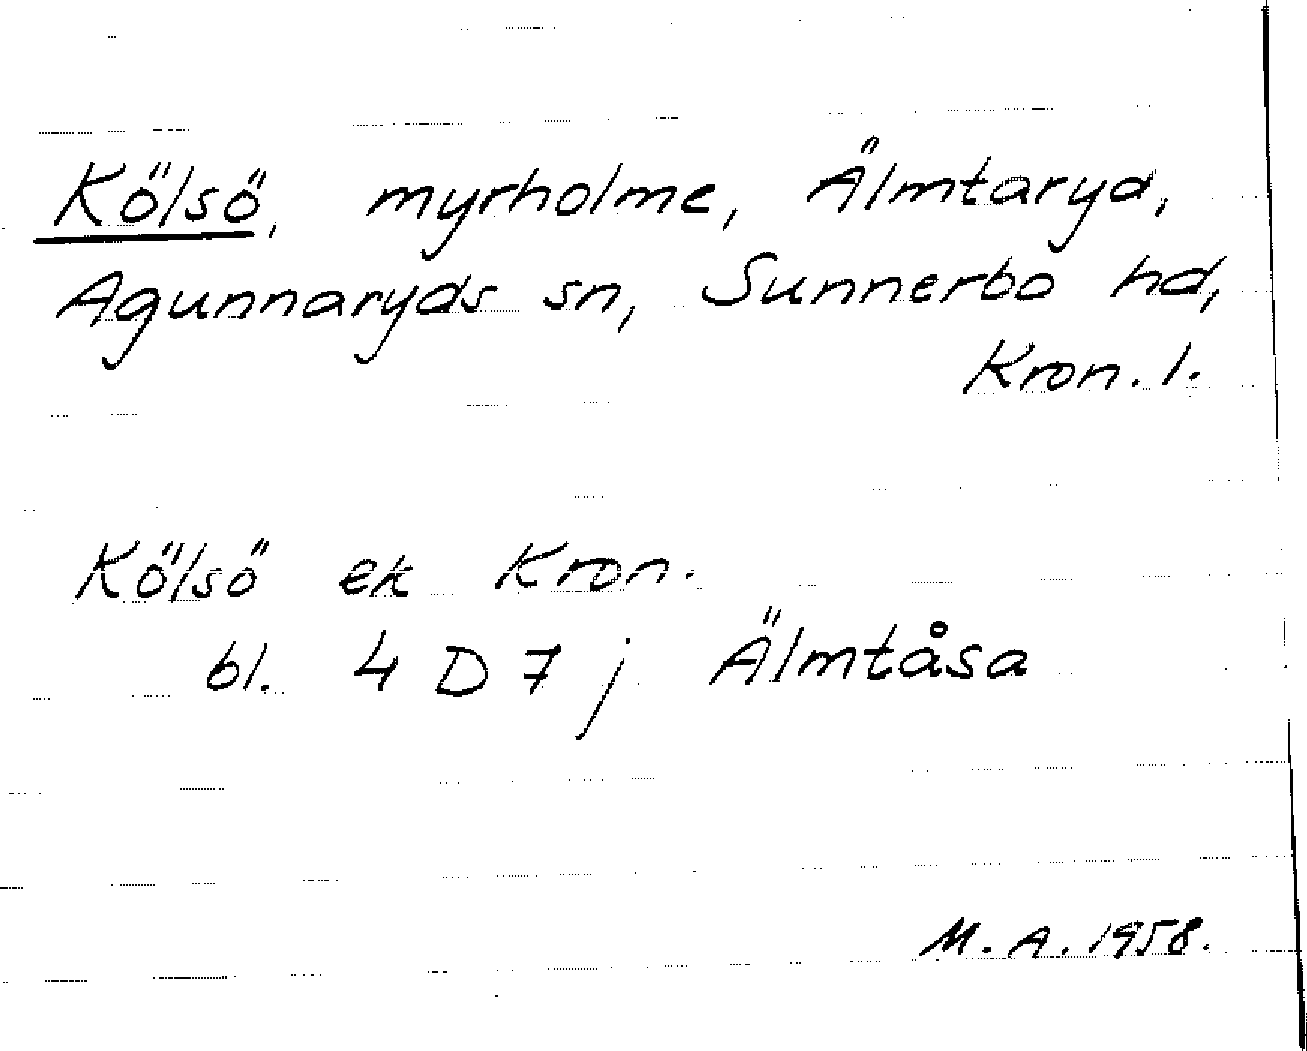 Kölsö, myrholme, Älmtaryd,
Agunnaryds sn, Sunnerbo hd,
Kron. l.
Kölsö ek Kron.
bl. 4 D 7 j Älmtåsa
M. A. 1958.